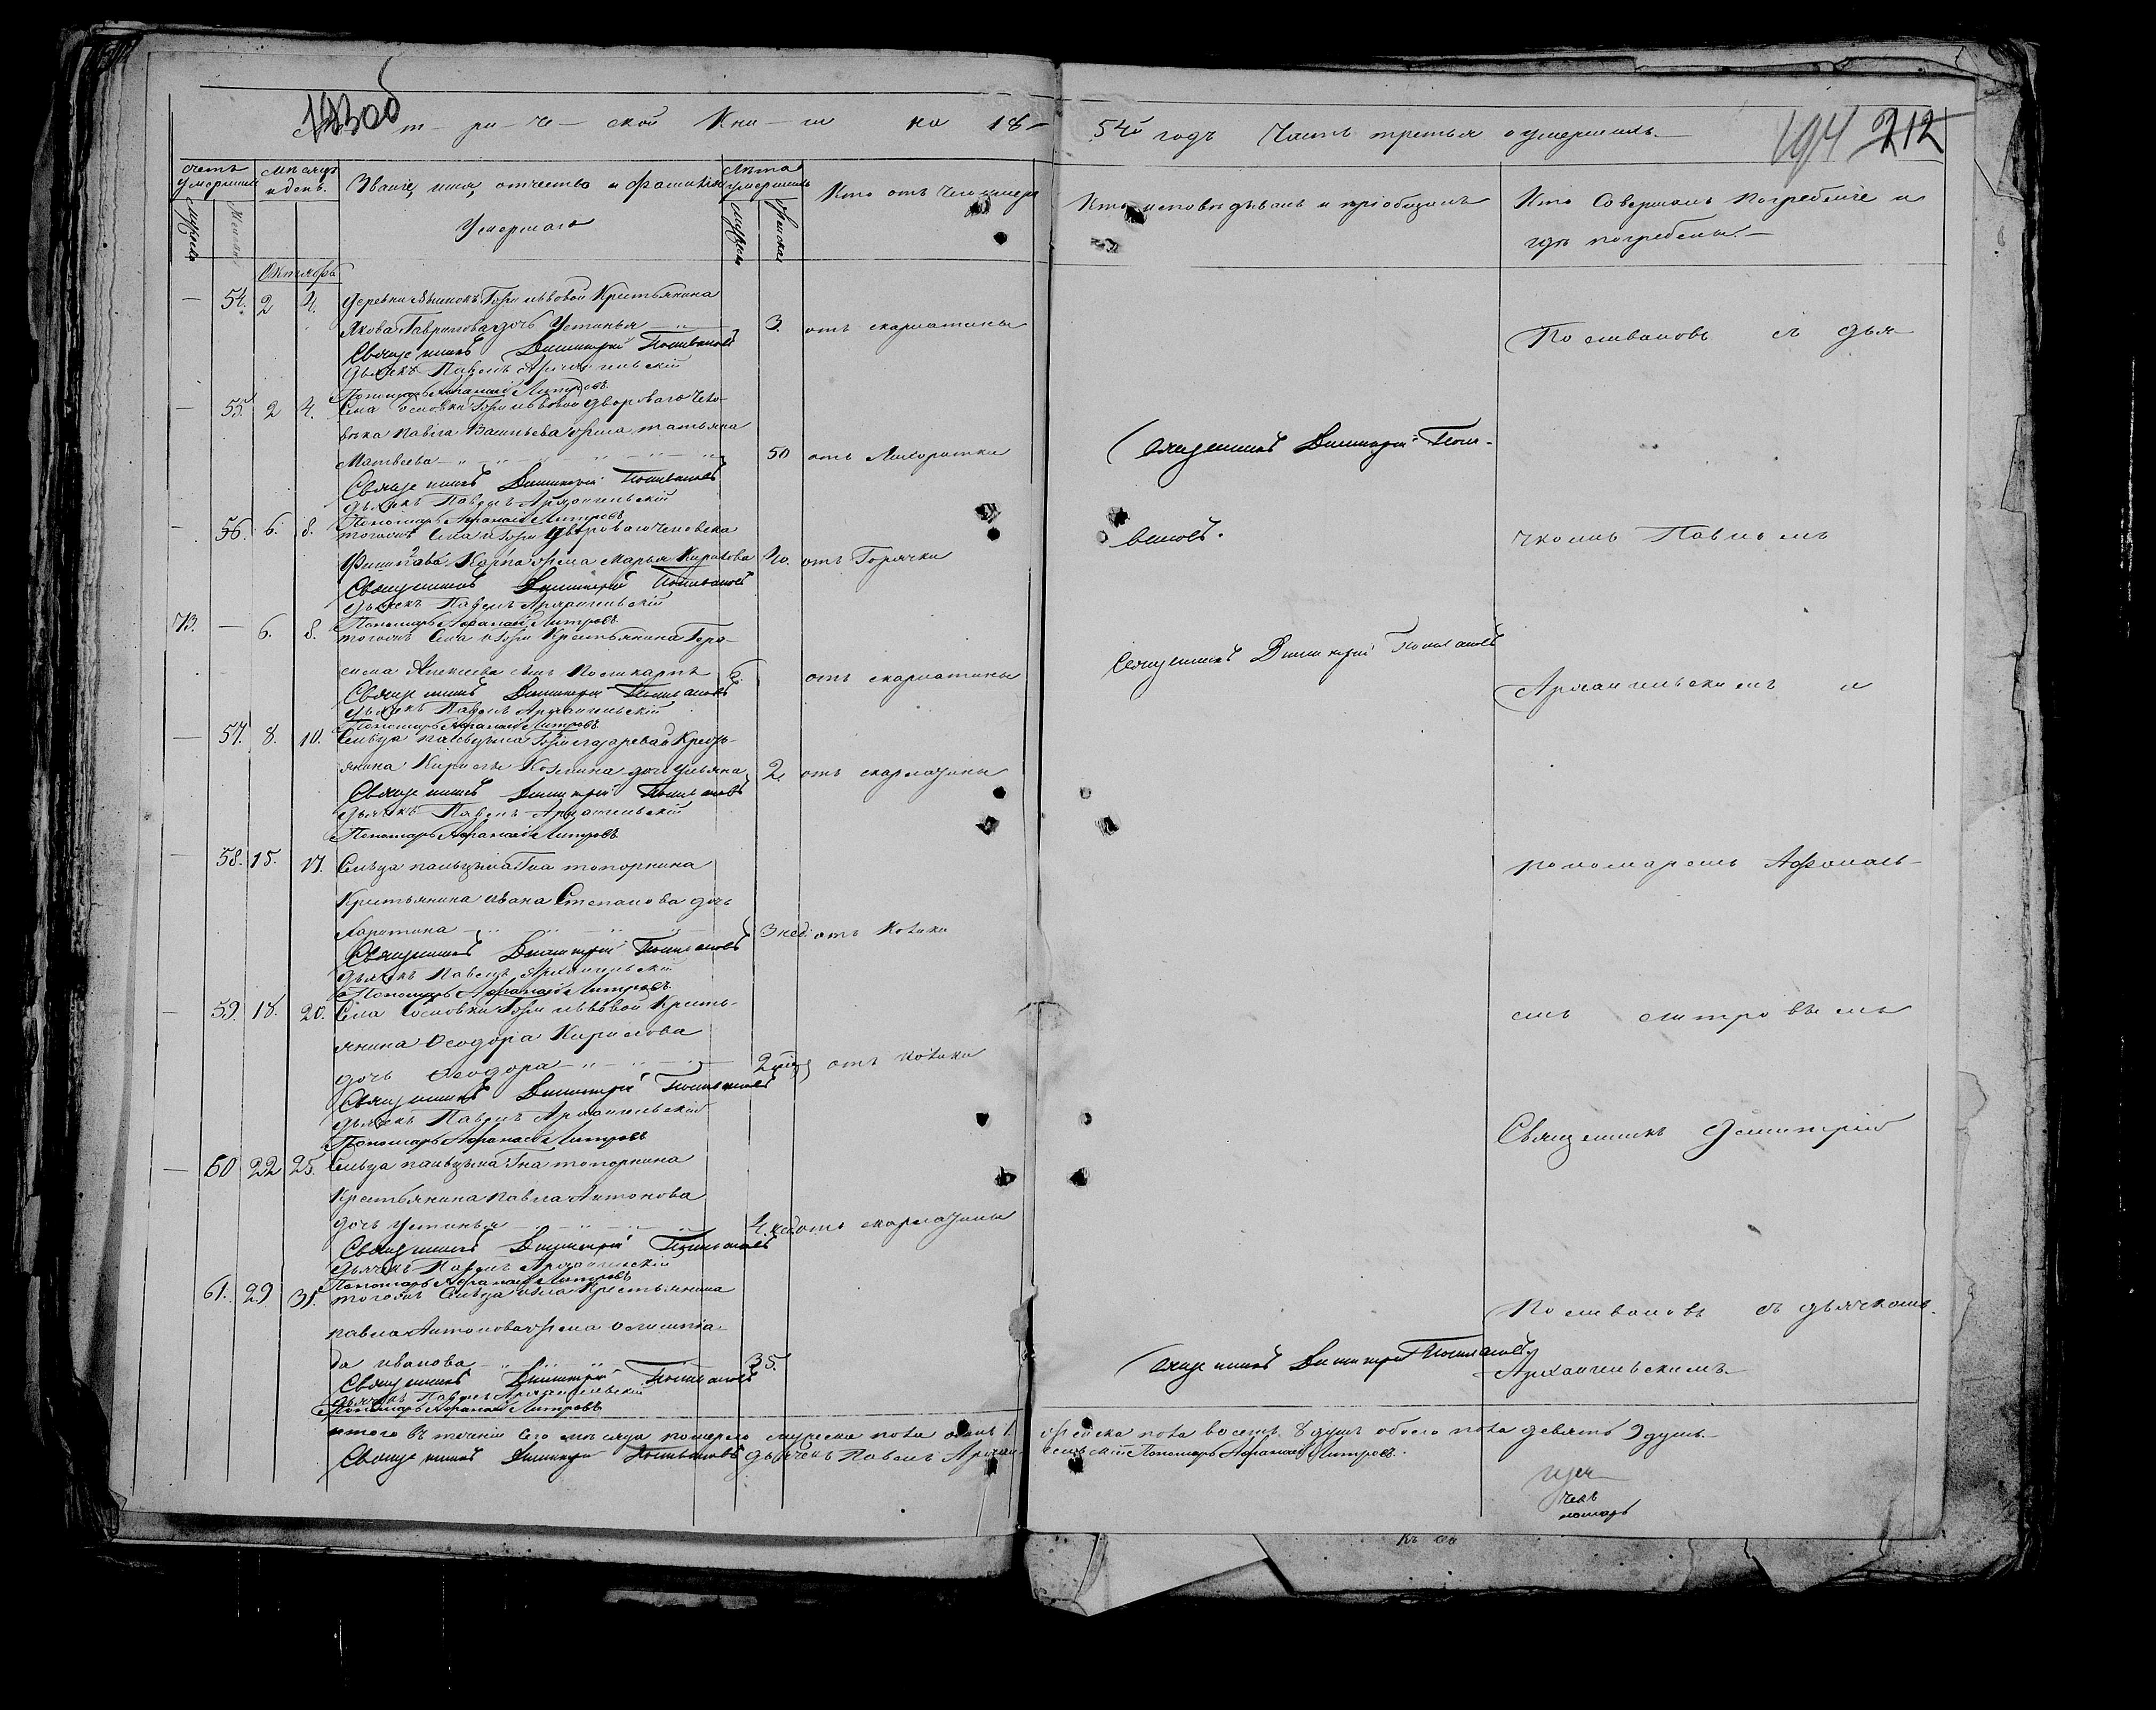 т - ри - че - ской Кни - ги на 18 -
54й годъ Часть третья о умершихъ.
194 212
Счетъ умершихъ
Мѣсяцъ и день.
Званіе, имя, отчество и фамилія
Умершаго
Лѣта умершихъ
Кто отъ чего умеръ
Кто исповѣдывалъ и пріобщалъ
Кто Совершалъ Погребеніе и
гдѣ погребены.
мужеска
женска
мужеска
женска
Октябрь
54. 2 4. Деревни Госпожи Львовой Крестьянина
Якова Гаврилова дочь Устинья 3. отъ скарлатины
Священникъ Димитрій Поливановъ
Дьячекъ Павелъ Архангельскій
Пономарь Афанасій Митровъ
55. 2 4. Села Сосновки Госпожи Львовой двороваго чело-
вѣка Павла Васильева жена Татьяна
Матвеева 50 отъ Лихорадки
Священникъ Димитрій Поливановъ
Дьячекъ Павелъ Архангельскій
Пономарь Афанасій Митровъ
56. 6. 8. тогожъ Села и Гжи двороваго человека
Карпа жена Марья Кирилова 40. отъ Горячки
Священникъ Димитрій Поливановъ
Дьячекъ Павелъ Архангельскій
Пономарь Афанасій Митровъ
73. — 6. 8. тогожъ Села и Гжи Крестьянина Гера-
сима Алексеева сынъ Поликарпъ 6. отъ скарлатины
Священникъ Димитрій Поливановъ
Дьячекъ Павелъ Архангельскій
Пономарь Афанасій Митровъ
57. 8. 10. Сельца Гжи Кресть-
янина Козмина дочь Ульяна 2. отъ скарлатины
Священникъ Димитрій Поливановъ
Дьячекъ Павелъ Архангельскій
Пономарь Афанасій Митровъ
58. 15. 17. Сельца Гна Топорнина
Крестьянина Ивана Степанова дочь
Харитина 3 нед. отъ Колики
Священникъ Димитрій Поливановъ
Дьячекъ Павелъ Архангельскій
Пономарь Афанасій Митровъ
59. 18. 20. Села Сосновки Госпожи Львовой Кресть-
янина Ѳеодора Кирилова
дочь Ѳеодора отъ Колики
Священникъ Димитрій Поливановъ
Дьячекъ Павелъ Архангельскій
Пономарь Афанасій Митровъ
60 22 25. Сельца Гна Топорнина
Крестьянина Павла Антонова
дочь Устинья 4. нед. отъ скарлатины
Священникъ Димитрій Поливановъ
Дьячекъ Павелъ Архангельскій
Пономарь Афанасій Митровъ
61. 29 31. тогожъ Сельца Крестьянина
Павла Антонова жена Олимпіа-
да Иванова 35.
Священникъ Димитрій Поливановъ
Дьячекъ Павелъ Архангельскій
Пономарь Афанасій Митровъ
Священникъ Димитрій Поли-
вановъ.
Священникъ Димитрій Поливановъ
Священникъ Димитрій Поливановъ
Поливановъ съ дья-
чкомъ Павломъ
Архангельскимъ и
пономаремъ Афонась-
емъ Митровымъ
Священникъ Димитрій
Поливановъ съ дьячкомъ
Архангельскимъ
итого въ теченіи сего мѣсяца померло мужеска пола одинъ 1. женска пола восемь 8 душъ обоего пола девять 9 душъ.
Священникъ Димитрій Поливановъ дьячекъ Павелъ Архан-
гельскій Пономарь Афанасій Митровъ.